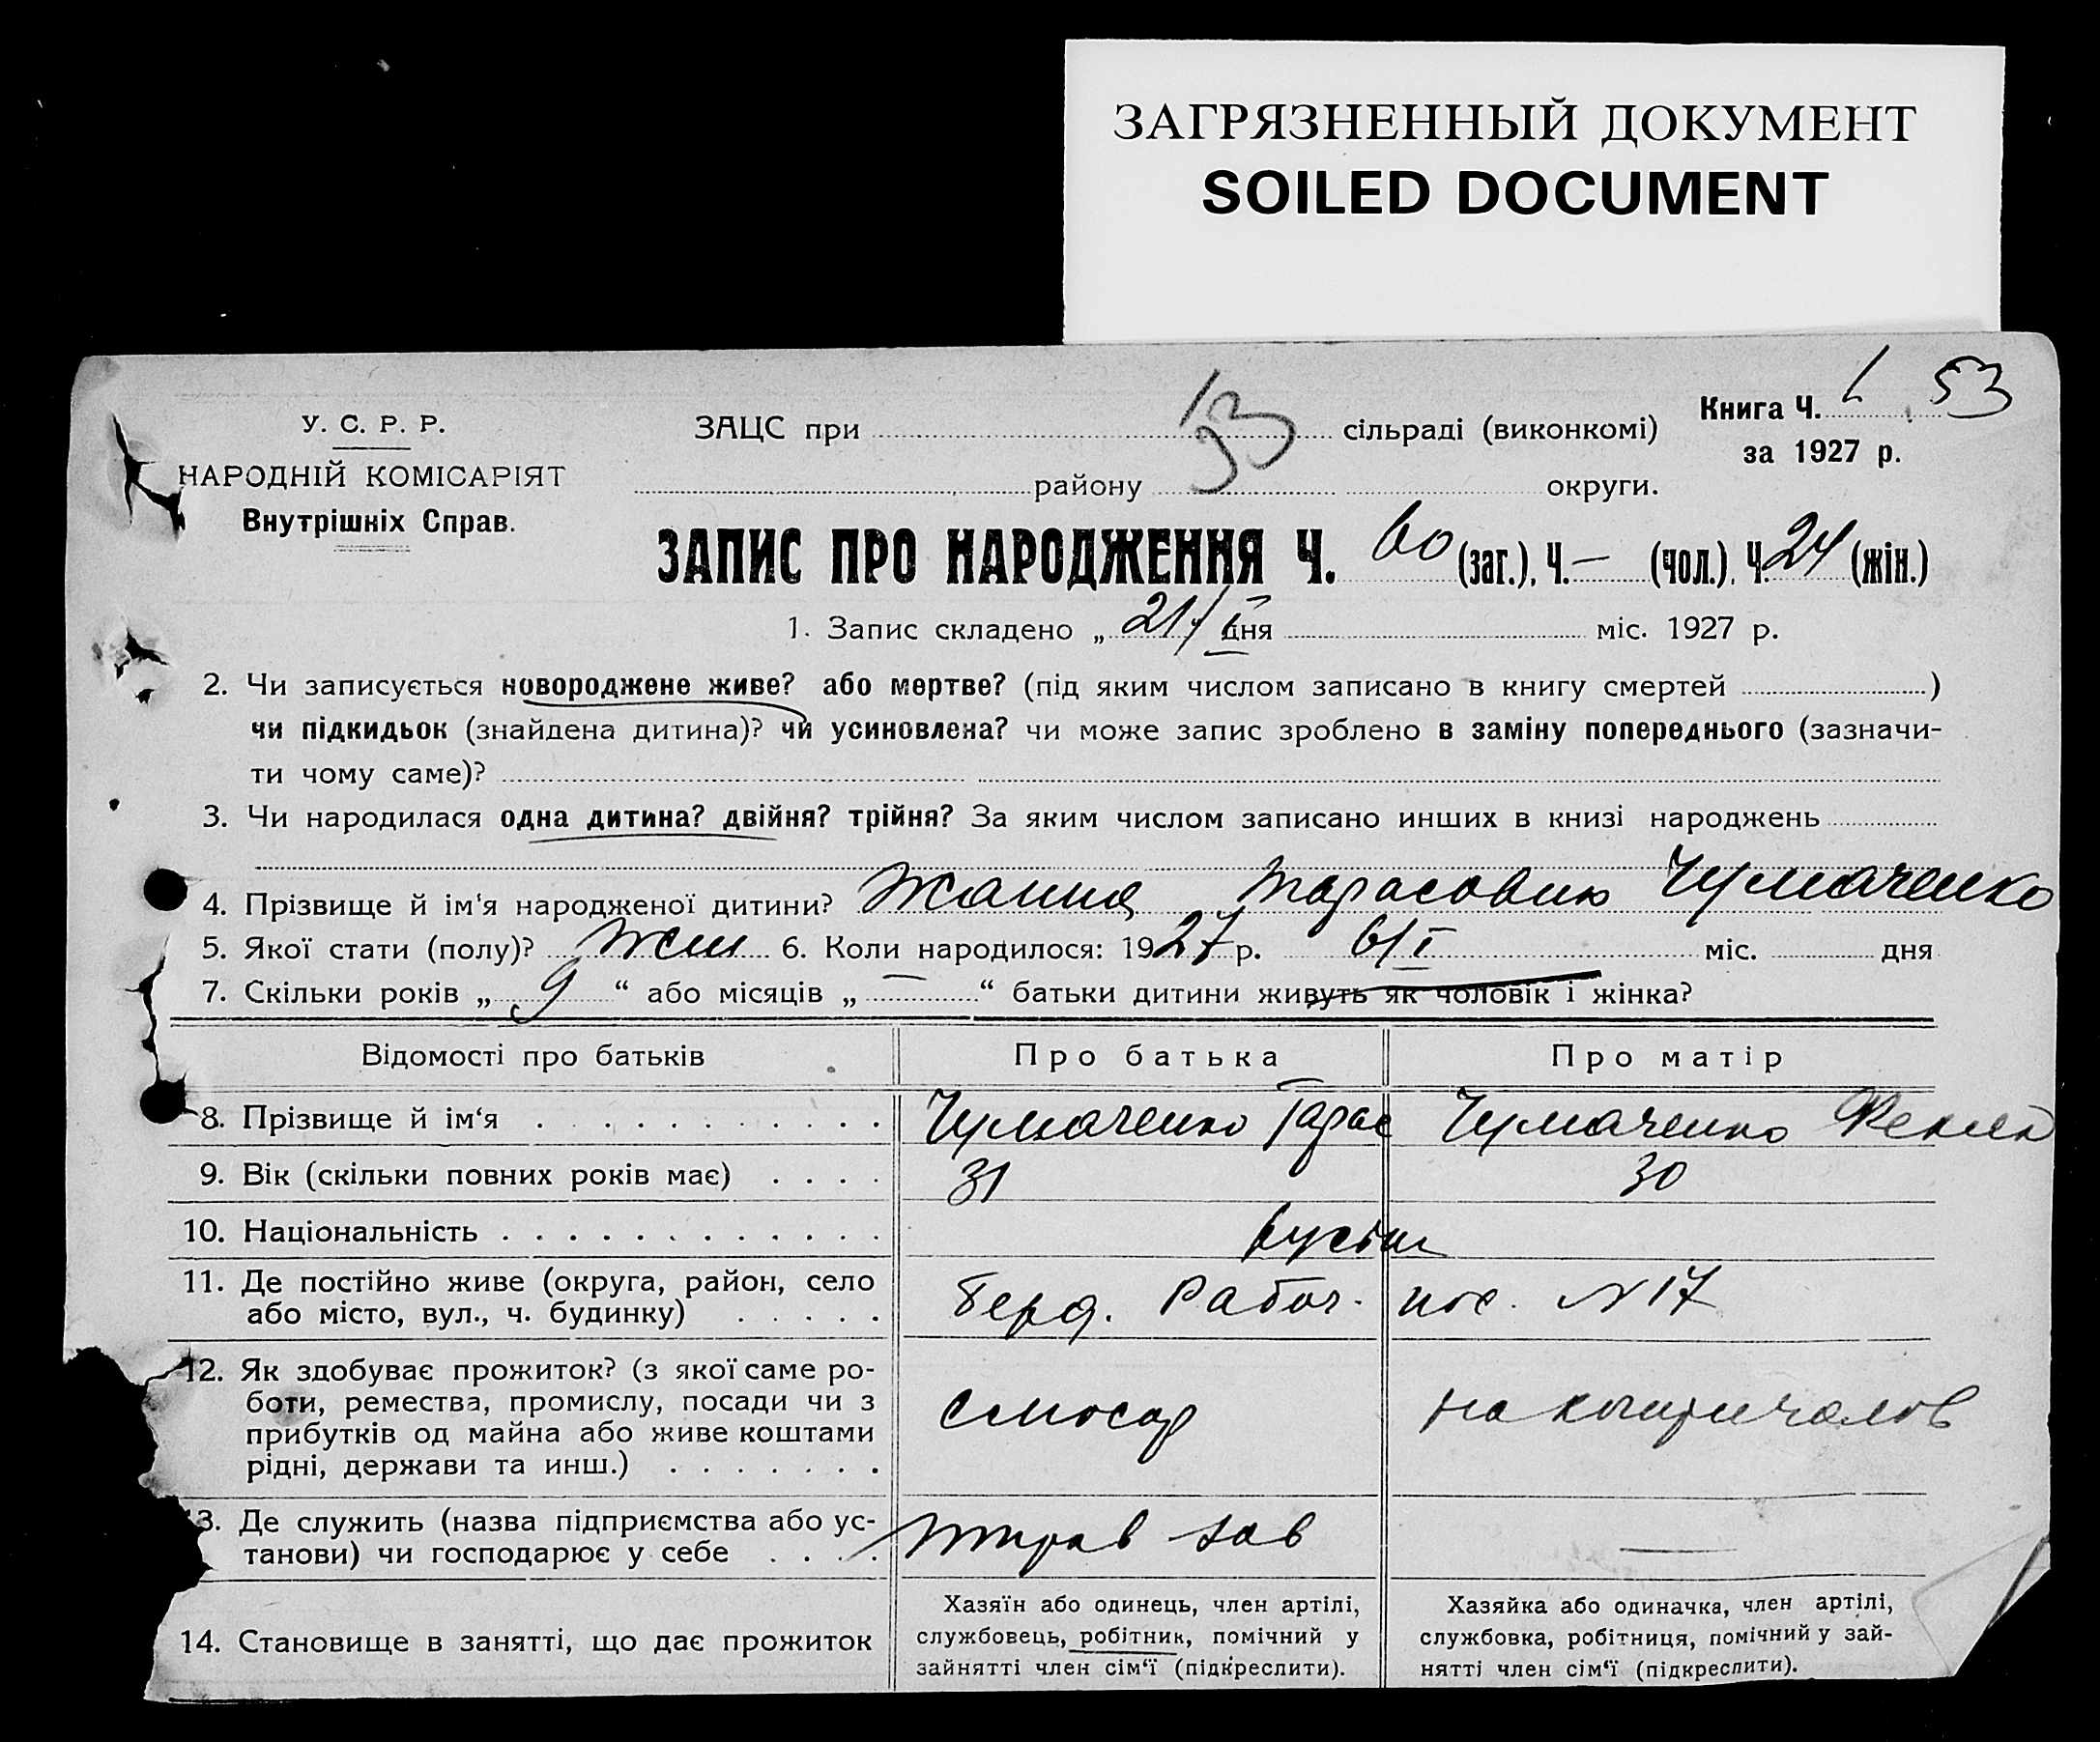 ЗАГРЯЗНЕННЫЙ ДОКУМЕНТ
SOILED DOCUMENT
Книга Ч. 53
за 1927 р.
У. С. Р. Р.
НАРОДНІЙ КОМІСАРІЯТ
Внутрішніх Справ.
ЗАЦС при 53 сільраді (виконкомі)
району округи.
ЗАПИС ПРО НАРОДЖЕННЯ Ч. 60 (заг.), Ч. — (чол.), Ч. 24 (жін.)
1. Запис складено „ 21/I дня міс. 1927 р.
2. Чи записується новороджене живе? або мертве? (під яким числом записано в книгу смертей )
чи підкидьок (знайдена дитина)? чи усиновлена? чи може запис зроблено в заміну попереднього (зазначи-
ти чому саме)?
3. Чи народилася одна дитина? двійня? трійня? За яким числом записано инших в книзі народжень
4. Прізвище й ім‘я народженої дитини? Жанна Тарасовно Чумаченко
5. Якої стати (полу)? жен 6. Коли народилося: 1927 р. 6/I міс. дня
7. Скільки років „ 9 “ або місяців „ — “ батьки дитини живуть як чоловік і жінка?
Відомості про батьків Про батька Про матір
8. Прізвище й ім‘я Чумаченко Тарас Чумаченко Фекла
9. Вік (скільки повних років має) 31 30
10. Національність
11. Де постійно живе (округа, район, село
або місто, вул., ч. будинку) Берд. Рабоч. пос. N 17
12. Як здобуває прожиток? (з якої саме ро-
боти, ремества, промислу, посади чи з
прибутків од майна або живе коштами
рідні, держави та инш.) слюсар
13. Де служить (назва підприємства або ус-
танови) чи господарює у себе зав —
14. Становище в занятті, що дає прожиток
Хазяїн або одинець, член артілі,
службовець, робітник, помічний у
зайнятті член сім‘ї (підкреслити).
Хазяйка або одиначка, член артілі,
службовка, робітниця, помічний у зай-
нятті член сім‘ї (підкреслити).